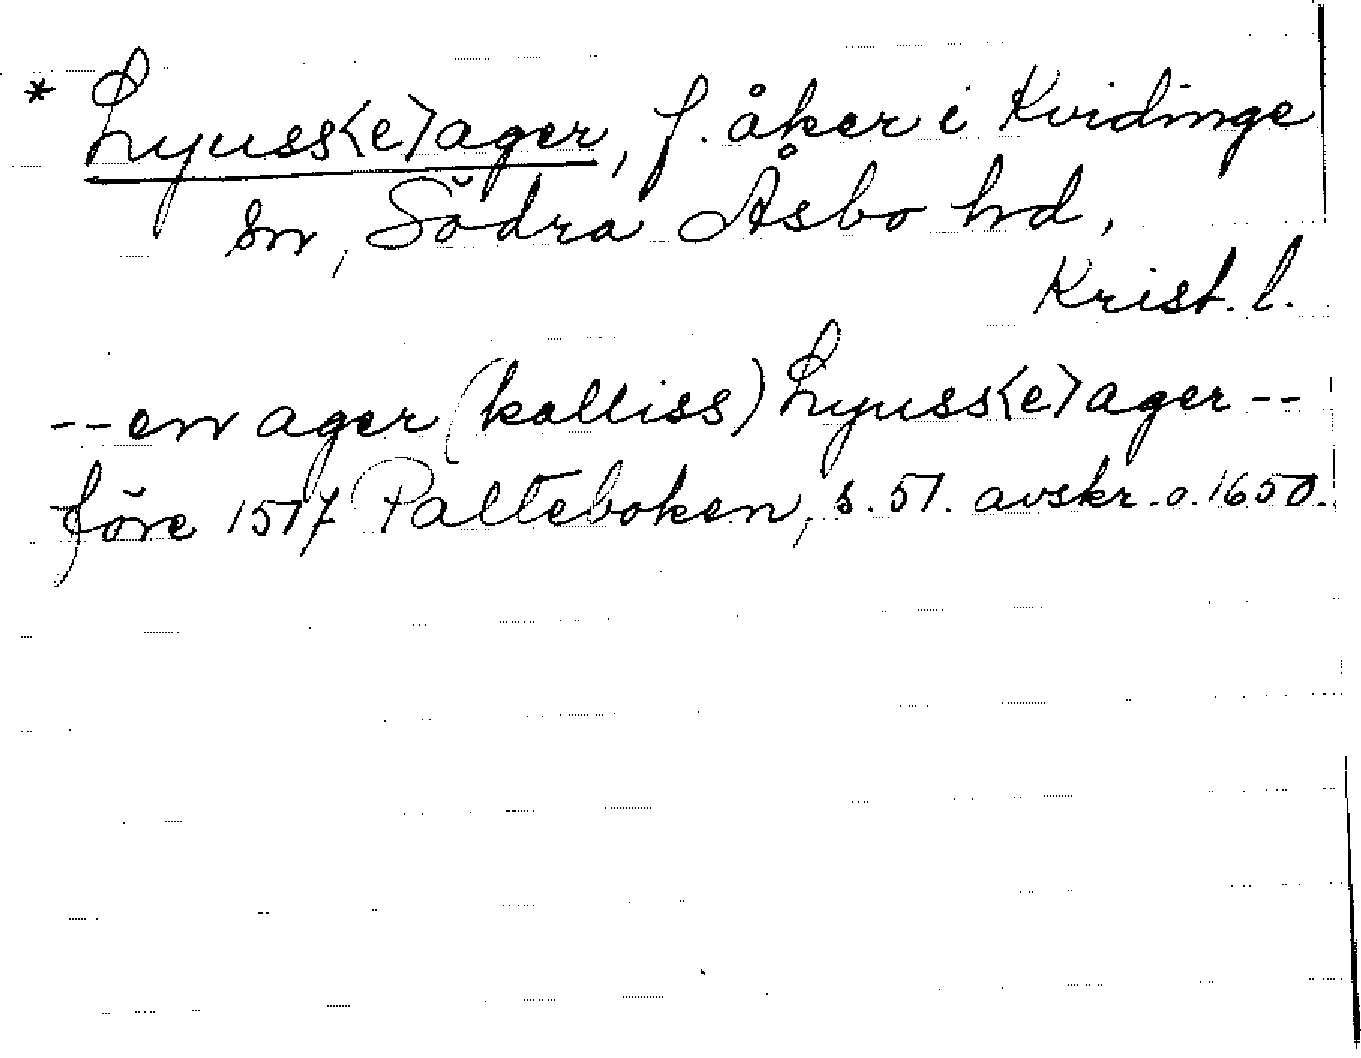 * Lyuss<e>ager, f. åker i Kvidinge
sn, Södra Åsbo hd,
Krist. l.
-- en ager (kalliss) Lyuss<e>ager --
före 1517 Palteboken, s. 51. avskr. o. 1650.